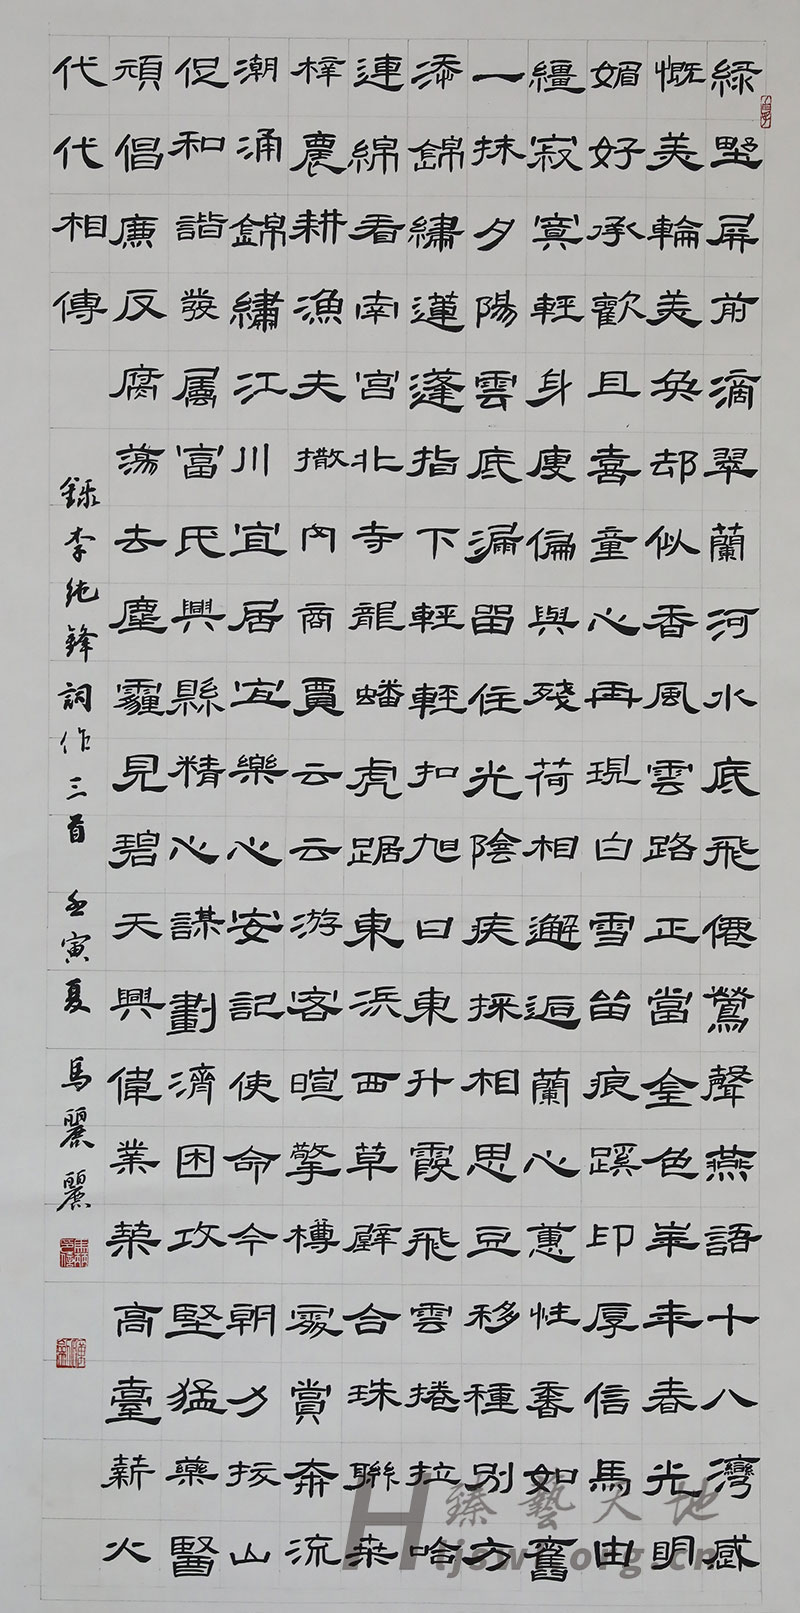 綠墅屏前滴翠蘭河水底飛僊鶯聲燕語十八灣感
慨美輪美奐却似香風雲路正當金色年年春光明
媚好承歡且喜童心再現白雪留痕蹊印厚信馬由
繮寂寞輕身廋偏與殘荷相邂逅蘭心蕙性番如舊
一抹夕陽雲底漏留住光陰疾採相思豆移種別方
添錦繡蓮蓬指下輕輕扣旭日東升霞飛雲捲拉哈
連綿看南宮北寺龍蟠虎踞東浜西草壁合珠聯桑
梓農耕漁夫撒网商賈云云游客暄擎樽處賞奔流
潮涌錦繡江川宜居宜樂心安記使命今朝力拔山
促和諧發展富民興縣精心謀劃濟困攻堅猛藥醫
頑倡廉反腐蕩去塵霾見碧天興偉業築高臺薪火
代代相傳
錄李純鋒詞作三首 壬寅夏 馬麗麗
臻藝天地